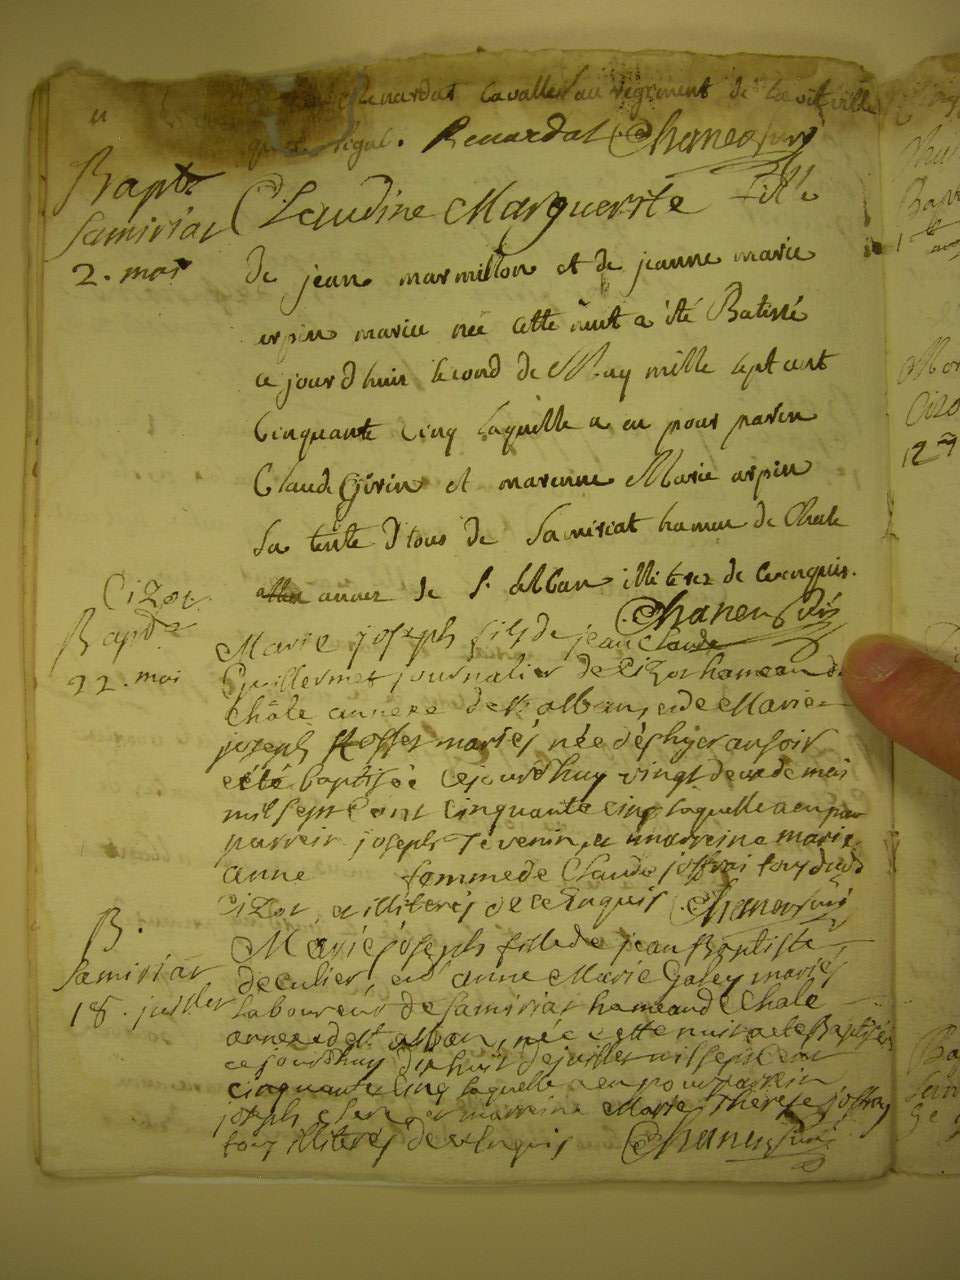 Renardat cavallier au regiment de
legal. Renardat Chanen curé
Bapt
Samiriat
2. mai
Claudine Marguerite fille
de jean marmillon et de jeanne marie
arpin mariee née cette nuit a été Batissé
ce jourdhuir second de May mille sept cent
Cinquante Cinq laquelle a eu pour parin
Claude Girin et marenne Marie arpin
sa tente Ttous de Samiriat hameau de Chale
annex de St Alban illiterez de ce enquis.
Chanen curé
Cizot
Bapt
22. mai
Marie joseph fils de jean Claude
Guillermet journalier de Cizot hameau de
Châle annexe de St alban, et de Marie
joseph Rosset mariés née dès hyer au soir
eté baptisée cejourdhuy vingt deux de mai
mil sept Cent Cinquante Cinq laquelle a eu pour
parrein joseph Tevenin et marreine marie
anne femme de Claude joffrai tous dudt
Cizot, et illiterés de ce Enquis Chanen curé
B.
Samiriat
18. juillet
Marie joseph fille de jean Baptiste
deculier, et d'anne Marie Galey mariés
laboureurs de Samiriat hameau de Chale
annexe de St alban, née cette nuit a eté Baptisée
ce jourdhuy dixhuit de juillet mil sept Cent
Cinquante Cinq laquelle a eu pour parrein
joseph et marreine Marie Therese joffray
tous illiterés de ce Enquis Chanen curé